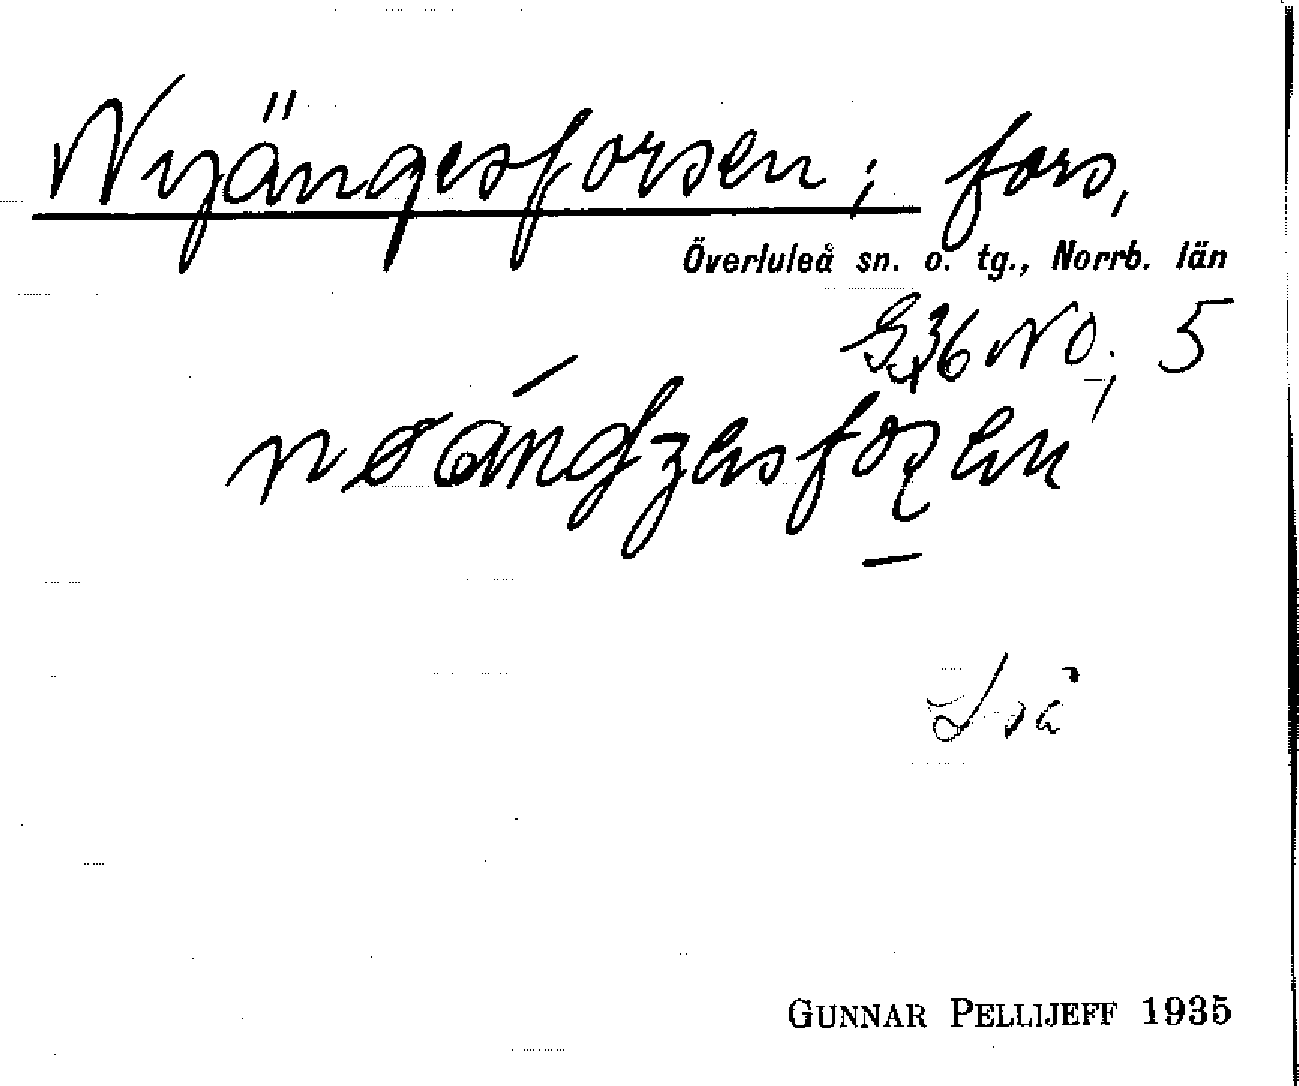 Nyängesforsen; fors,
Överluleå sn. o. tg., Norrb. län
G36 NO; 5
Lså
GUNNAR PELLIJEFF 1935